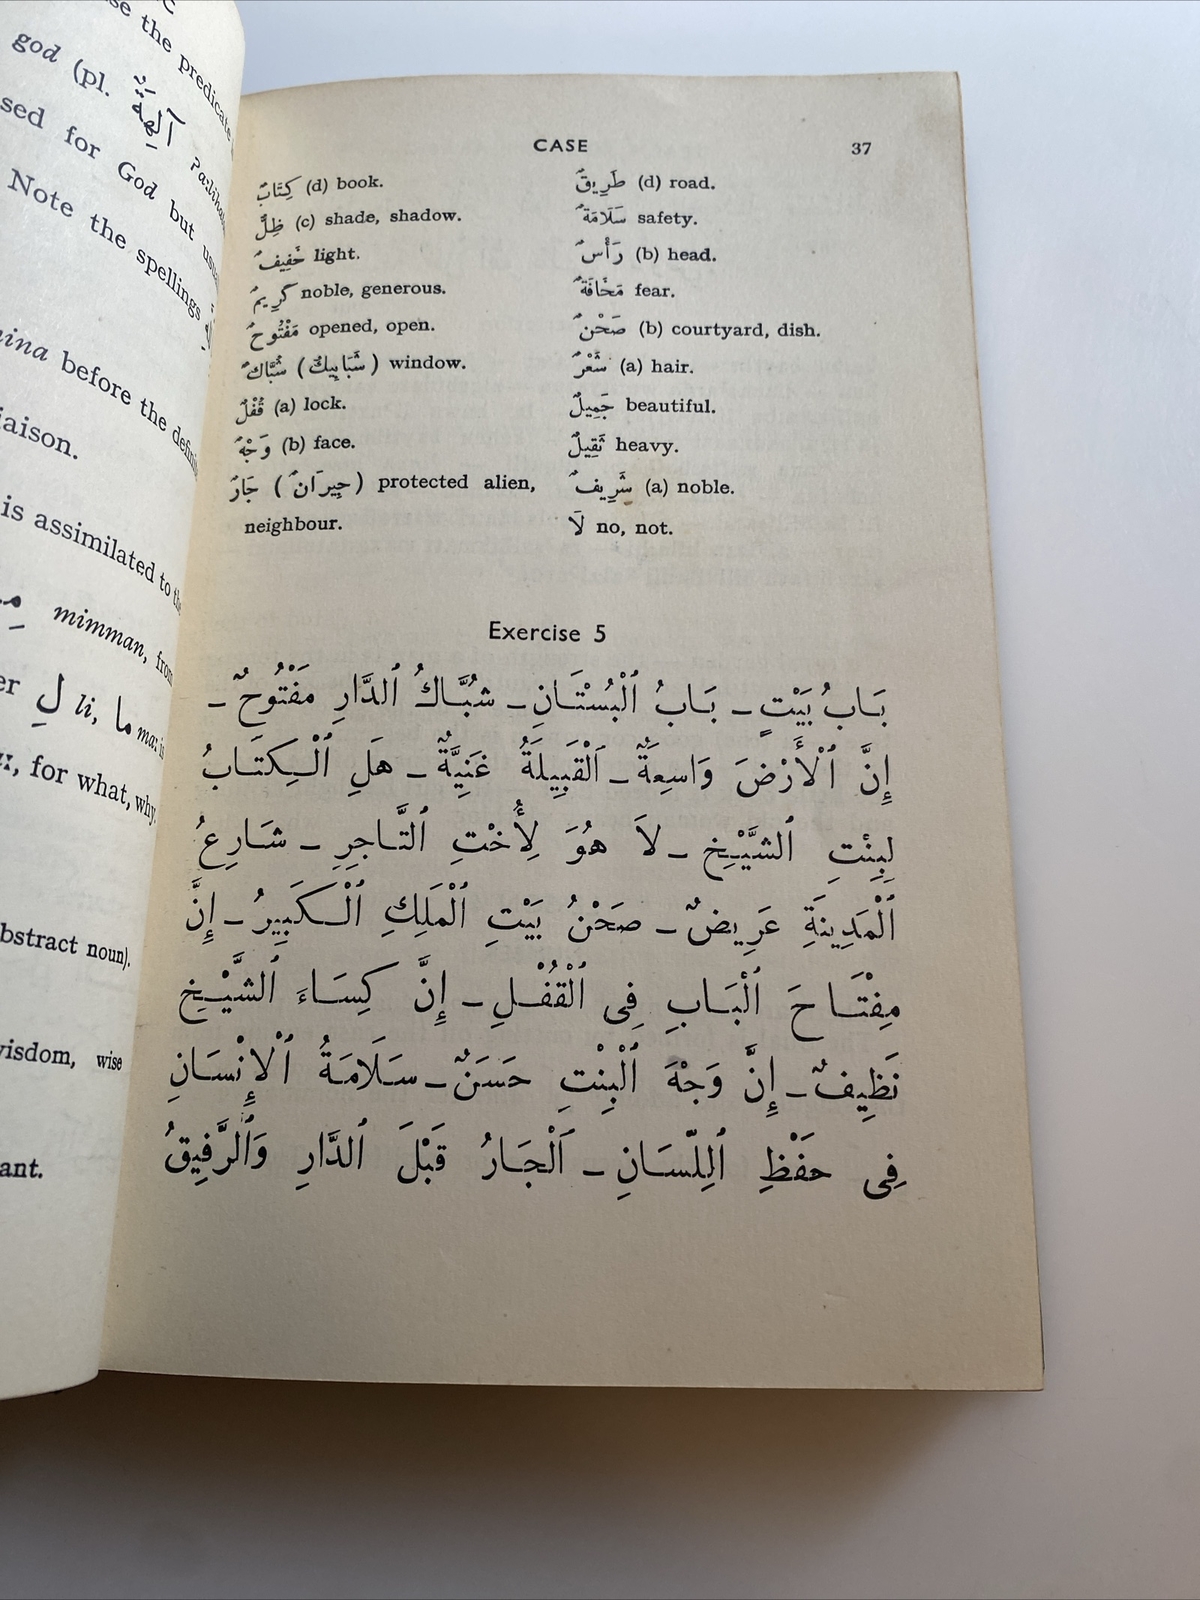 se the predicate
god (pl. آلِهَةٌ ʔaːlihat
sed for God but usu
Note the spellings
nina before the defini
iaison.
is assimilated to the
mimman, from
er لِ li, ما maː
for what, why
bstract noun).
visdom, wise
ant.
CASE 37
كِتَابٌ (d) book.
ظِلٌّ (c) shade, shadow.
خَفِيفٌ light.
كَرِيمٌ noble, generous.
مَفْتُوحٌ opened, open.
شُبَّاكٌ (شَبَابِيكُ) window.
قُفْلٌ (a) lock.
وَجْهٌ (b) face.
جَارٌ (جِيرَانٌ) protected alien,
neighbour.
طَرِيقٌ (d) road.
سَلَامَةٌ safety.
رَأْسٌ (b) head.
مَخَافَةٌ fear.
صَحْنٌ (b) courtyard, dish.
شَعْرٌ (a) hair.
جَمِيلٌ beautiful.
ثَقِيلٌ heavy.
شَرِيفٌ (a) noble.
لَا no, not.
Exercise 5
بَابُ بَيْتٍ – بَابُ ٱلْبُسْتَانِ – شُبَّاكُ ٱلدَّارِ مَفْتُوحٌ –
إِنَّ ٱلْأَرْضَ وَاسِعَةٌ – اَلْقَبِيلَةُ غَنِيَّةٌ – هَلِ ٱلْكِتَابُ
لِبِنْتِ ٱلشَّيْخِ – لَا هُوَ لِأُخْتِ ٱلتَّاجِرِ – شَارِعُ
ٱلْمَدِينَةِ عَرِيضٌ – صَحْنُ بَيْتِ ٱلْمَلِكِ ٱلْكَبِيرُ – إِنَّ
مِفْتَاحَ ٱلْبَابِ فِى ٱلْقُفْلِ – إِنَّ كِسَاءَ ٱلشَّيْخِ
نَظِيفٌ – إِنَّ وَجْهَ ٱلْبِنْتِ حَسَنٌ – سَلَامَةُ ٱلْإِنْسَانِ
فِى حِفْظِ ٱللِّسَانِ – اَلْجَارُ قَبْلَ ٱلدَّارِ وَٱلرَّفِيقُ